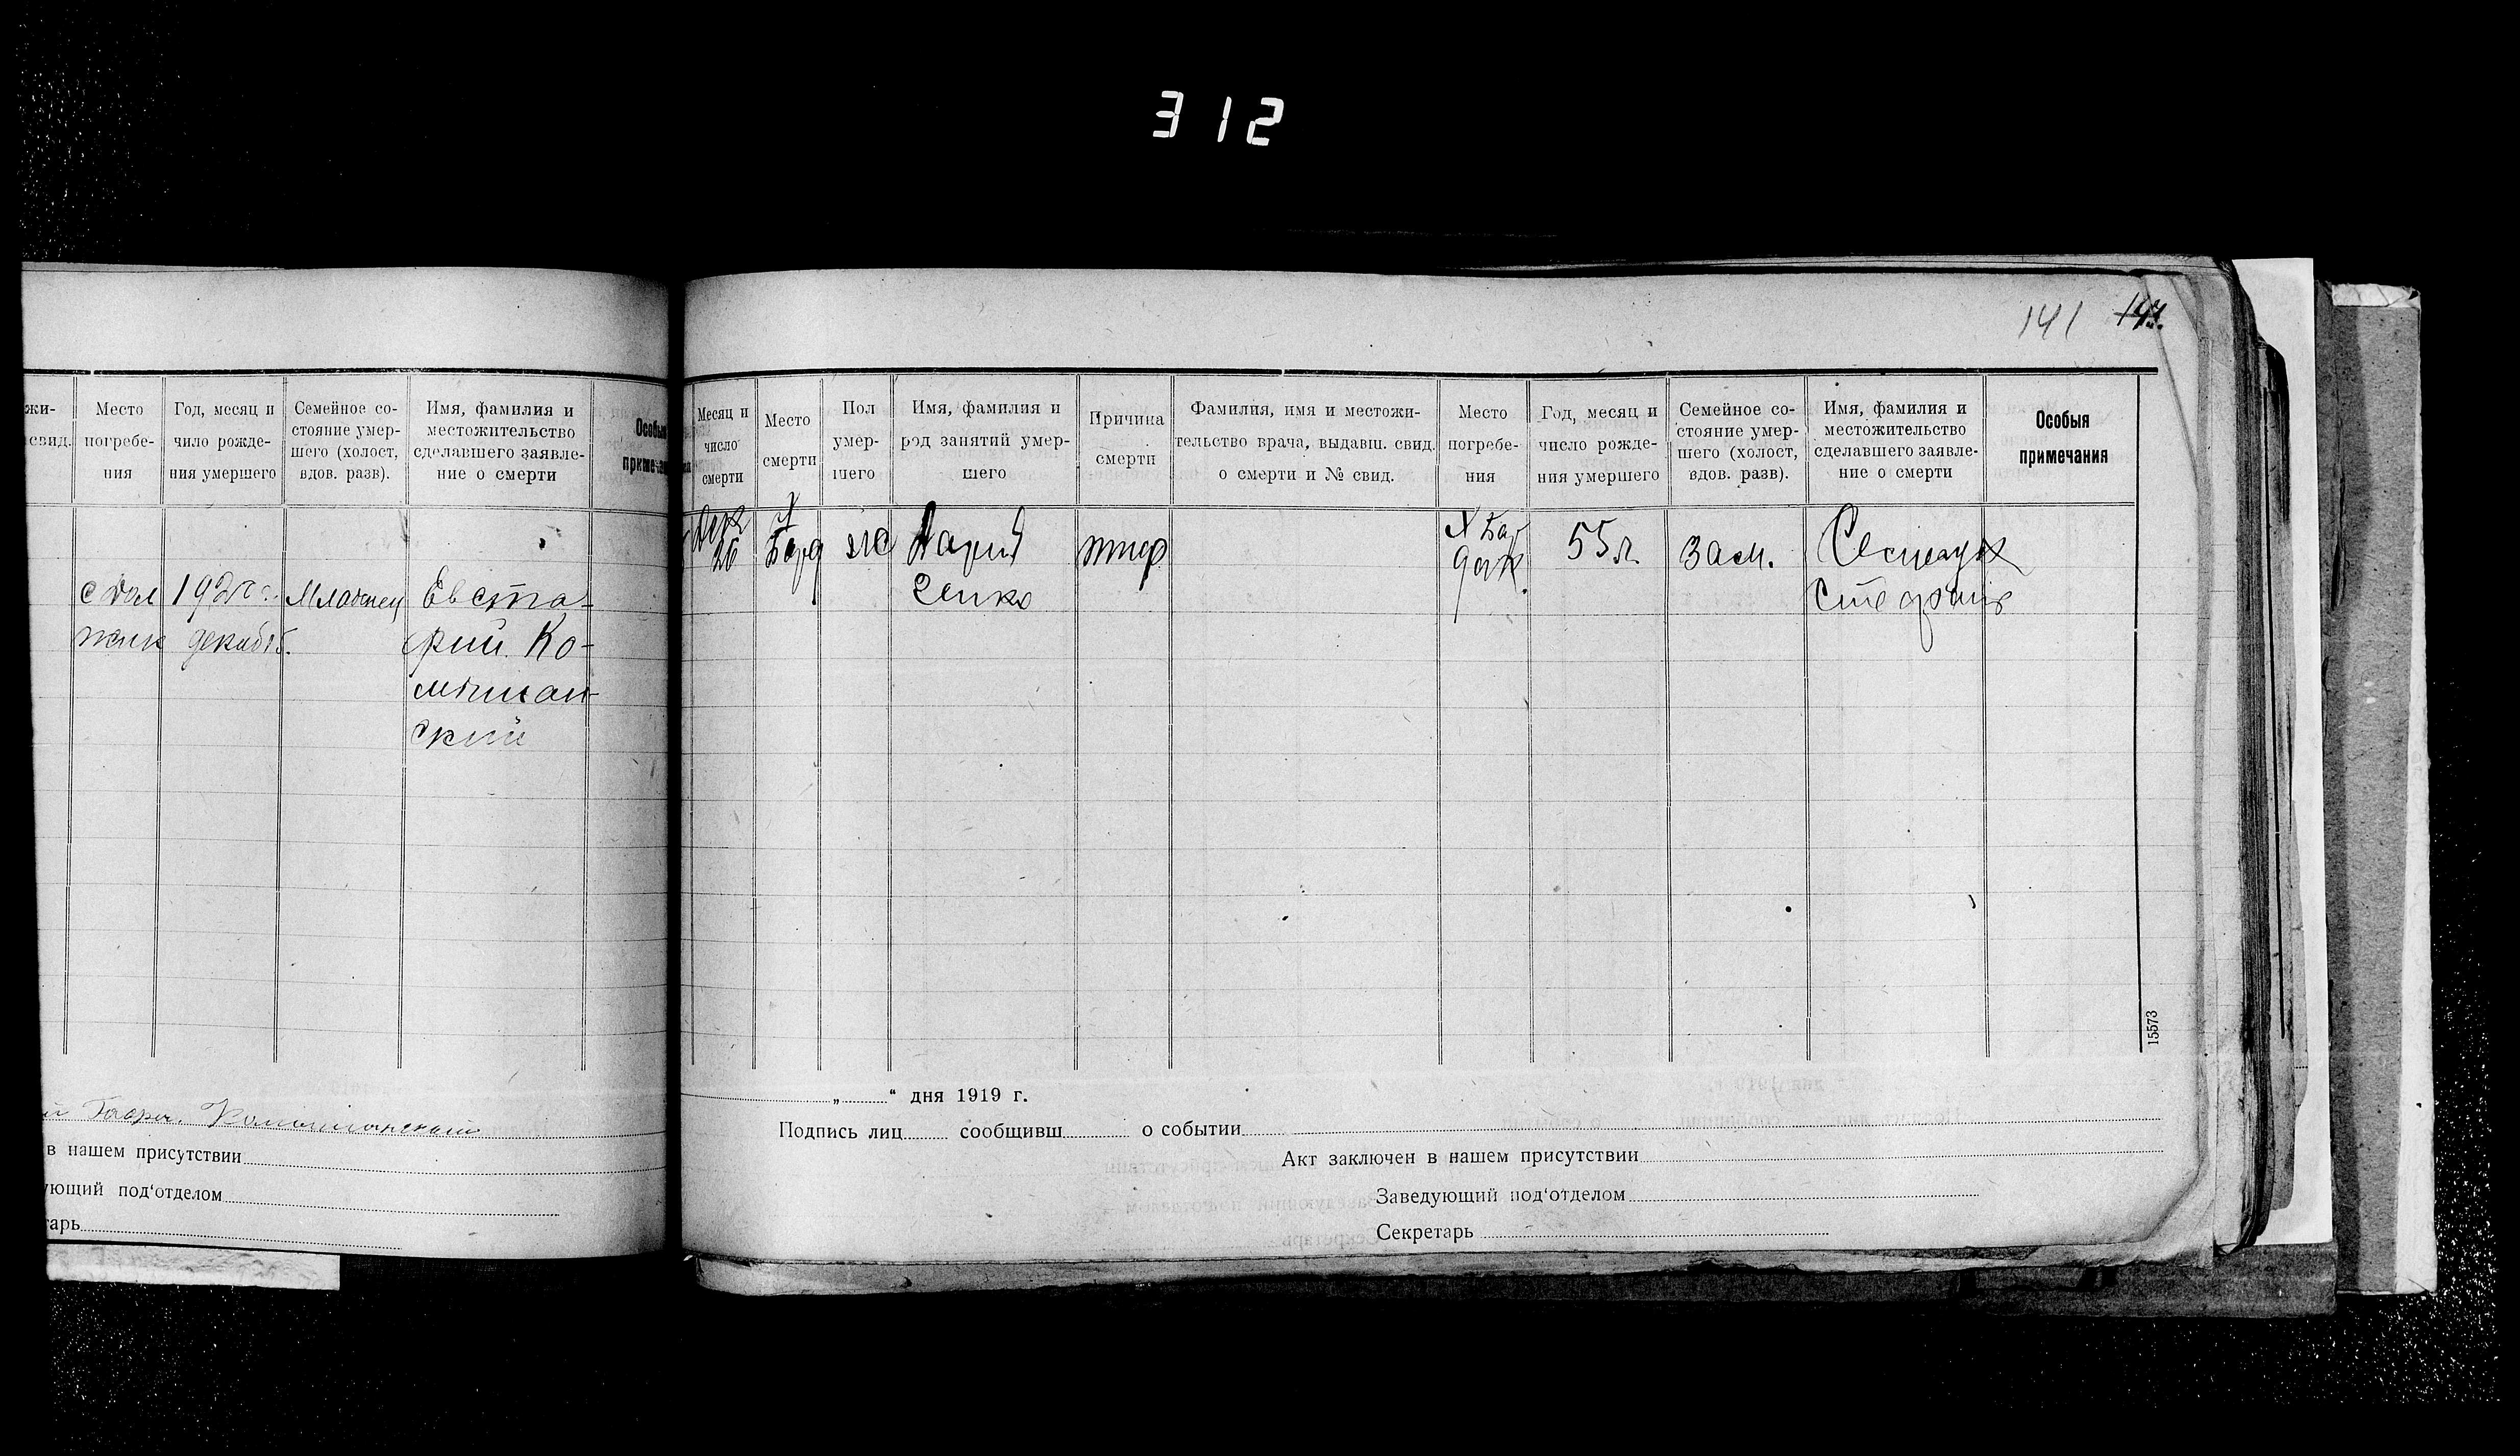 312
141
жи-
свид.
Место
погребе-
ния
Год, месяц и
чило рожде-
ния умершего
Семейное со-
стояние умер-
шего (холост,
вдов. разв).
Имя, фамилия и
местожительство
сделавшего заявле-
ние о смерти
Особыя
примечан
1920 г.
декаб 15.
Младенец
Евста-
фий Ко-
ский
в нашем присутствии
ующий под‘отделом
арь
Месяц и
число
смерти
Место
смерти
Пол
умер-
шего
Имя, фамилия и
род занятий умер-
шего
Причина
смерти
Фамилия, имя и местожи-
тельство врача, выдавш. свид.
о смерти и № свид.
Место
погребе-
ния
Год, месяц и
число рожде-
ния умершего
Семейное со-
стояние умер-
шего (холост,
вдов. разв).
Имя, фамилия и
местожительство
сделавшего заявле-
ние о смерти
Особыя
примечания
Дек
26
тиф
55 л.
зам.
15573
„ “ дня 1919 г.
Подпись лиц сообщивш о событии
Акт заключен в нашем присутствии
Заведующий под‘отделом
Секретарь